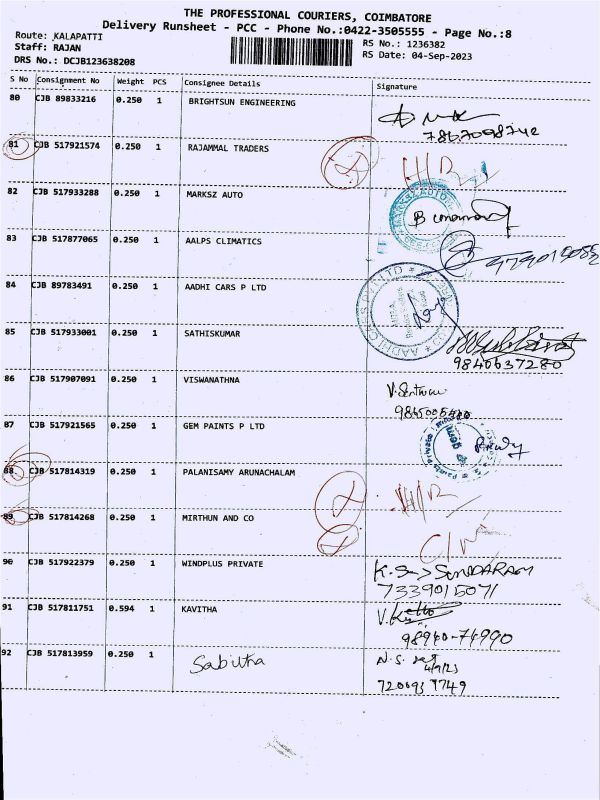 THE PROFESSIONAL COURIERS, COIMBATORE
Delivery Runsheet - PCC - Phone No.:0422-3505555 - Page No.:8
Route: KALAPATTI
RS No.: 1236382
Staff: RAJAN
RS Date: 04-Sep-2023
DRS No.: DCJB123638208
S No Consignment No Weight PCS Consignee Details Signature
80 CJB 89833216 0.250 1 BRIGHTSUN ENGINEERING
81 CJB 517921574 0.250 1 RAJAMMAL TRADERS
82 CJB 517933288 0.250 1 MARKSZ AUTO
83 CJB 517877065 0.250 1 AALPS CLIMATICS
84 CJB 89783491 0.250 1 AADHI CARS P LTD
85 CJB 517933001 0.250 1 SATHISKUMAR
9840637280
86 CJB 517907091 0.250 1 VISWANATHNA
87 CJB 517921565 0.250 1 GEM PAINTS P LTD
88 CJB 517814319 0.250 1 PALANISAMY ARUNACHALAM
89 CJB 517814268 0.250 1 MIRTHUN AND CO
90 CJB 517922379 0.250 1 WINDPLUS PRIVATE K.S-> SUNDARAM
7339015071
91 CJB 517811751 0.594 1 KAVITHA
98940-74990
92 CJB 517813959 0.250 1 Sabitha N.S.
4/9/23